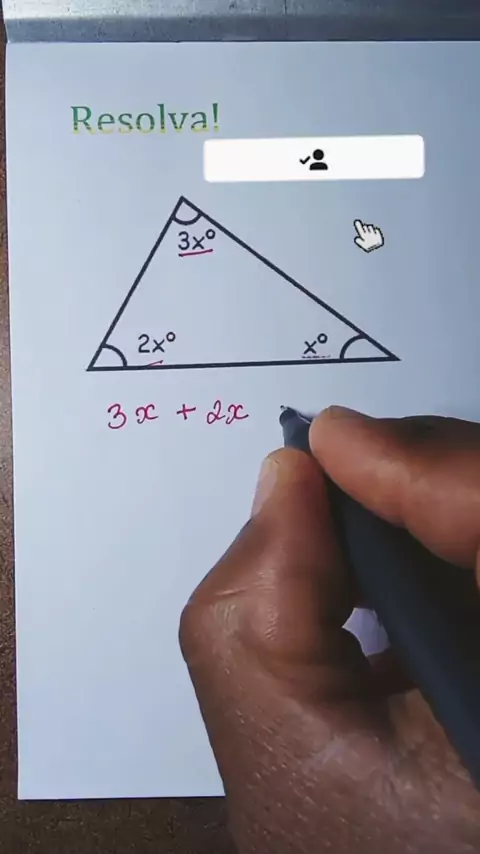 Resolva!
3x°
2x° x°
3x + 2x